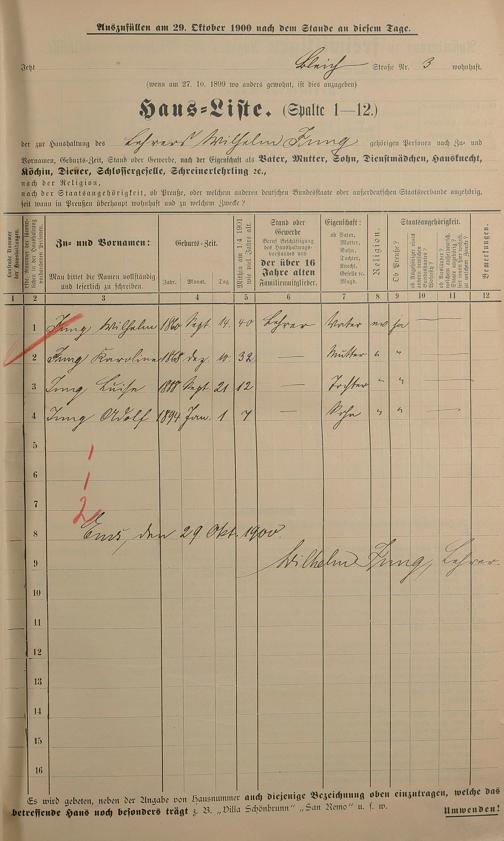 Auszufüllen am 29. Oktober 1900 nach dem Stande an diesem Tage.
Jetzt Bleich Straße Nr. 3 wohnhaft.
(wenn am 27. 10. 1899 wo anders gewohnt, ist dies anzugeben)
Haus-Liste. (Spalte 1—12.)
der zur Haushaltung des Lehrers Wilhelm Jung gehörigen Personen nach Zu- und
Vornamen, Geburts-Zeit, Stand oder Gewerbe, nach der Eigenschaft als Vater, Mutter, Sohn, Dienstmädchen, Hausknecht,
Köchin, Diener, Schlossergeselle, Schreinerlehrling ꝛc.,
nach der Religion,
nach der Staatsangehörigkeit, ob Preuße, oder welchem anderen deutschen Bundesstaate oder außerdeutschen Staatsverbande angehörig,
seit wann in Preußen überhaupt wohnhaft und zu welchem Zwecke?
Zu- und Vornamen:
Man bittet die Namen vollständig
und leserlich zu schreiben.
Geburts-Zeit.
Jahr. Monat. Tag.
Welches am 1/4 1901
wie viel Jahre alt.
Stand oder
Gewerbe
Beruf Beschäftigung
des Haushaltungs-
vorstandes und
der über 16
Jahre alten
Familienmitglieder.
Eigenschaft:
ob Vater,
Mutter,
Sohn,
Tochter,
Knecht,
Geselle u.
Magd.
Religion.
Staatsangehörigkeit.
Ob Preuße?
Bemerkungen.
1 2 3 4 5 6 7 8 9 10 11 12
1 Jung Wilhelm 1860 Sept 14. 40 Lehrer Vater ev ja —
2 Jung Karoline 1868 dez 10. 32 — Mutter " " —
3 Jung Luise 1888 Sept 21 12 — Tochter " " —
4 Jung Adolf 1894 Jan. 1 7 — Sohn " " —
5
1
6
1
7
2
Ems, den 29 Okt. 1900.
8
Wilhelm Jung, Lehrer.
9
10
11
12
13
14
15
16
Es wird gebeten, neben der Angabe von Hausnummer auch diejenige Bezeichnung oben einzutragen, welche das
betreffende Haus noch besonders trägt z. B. „Villa Schönbrunn" „San Remo" u. s. w.
Umwenden!